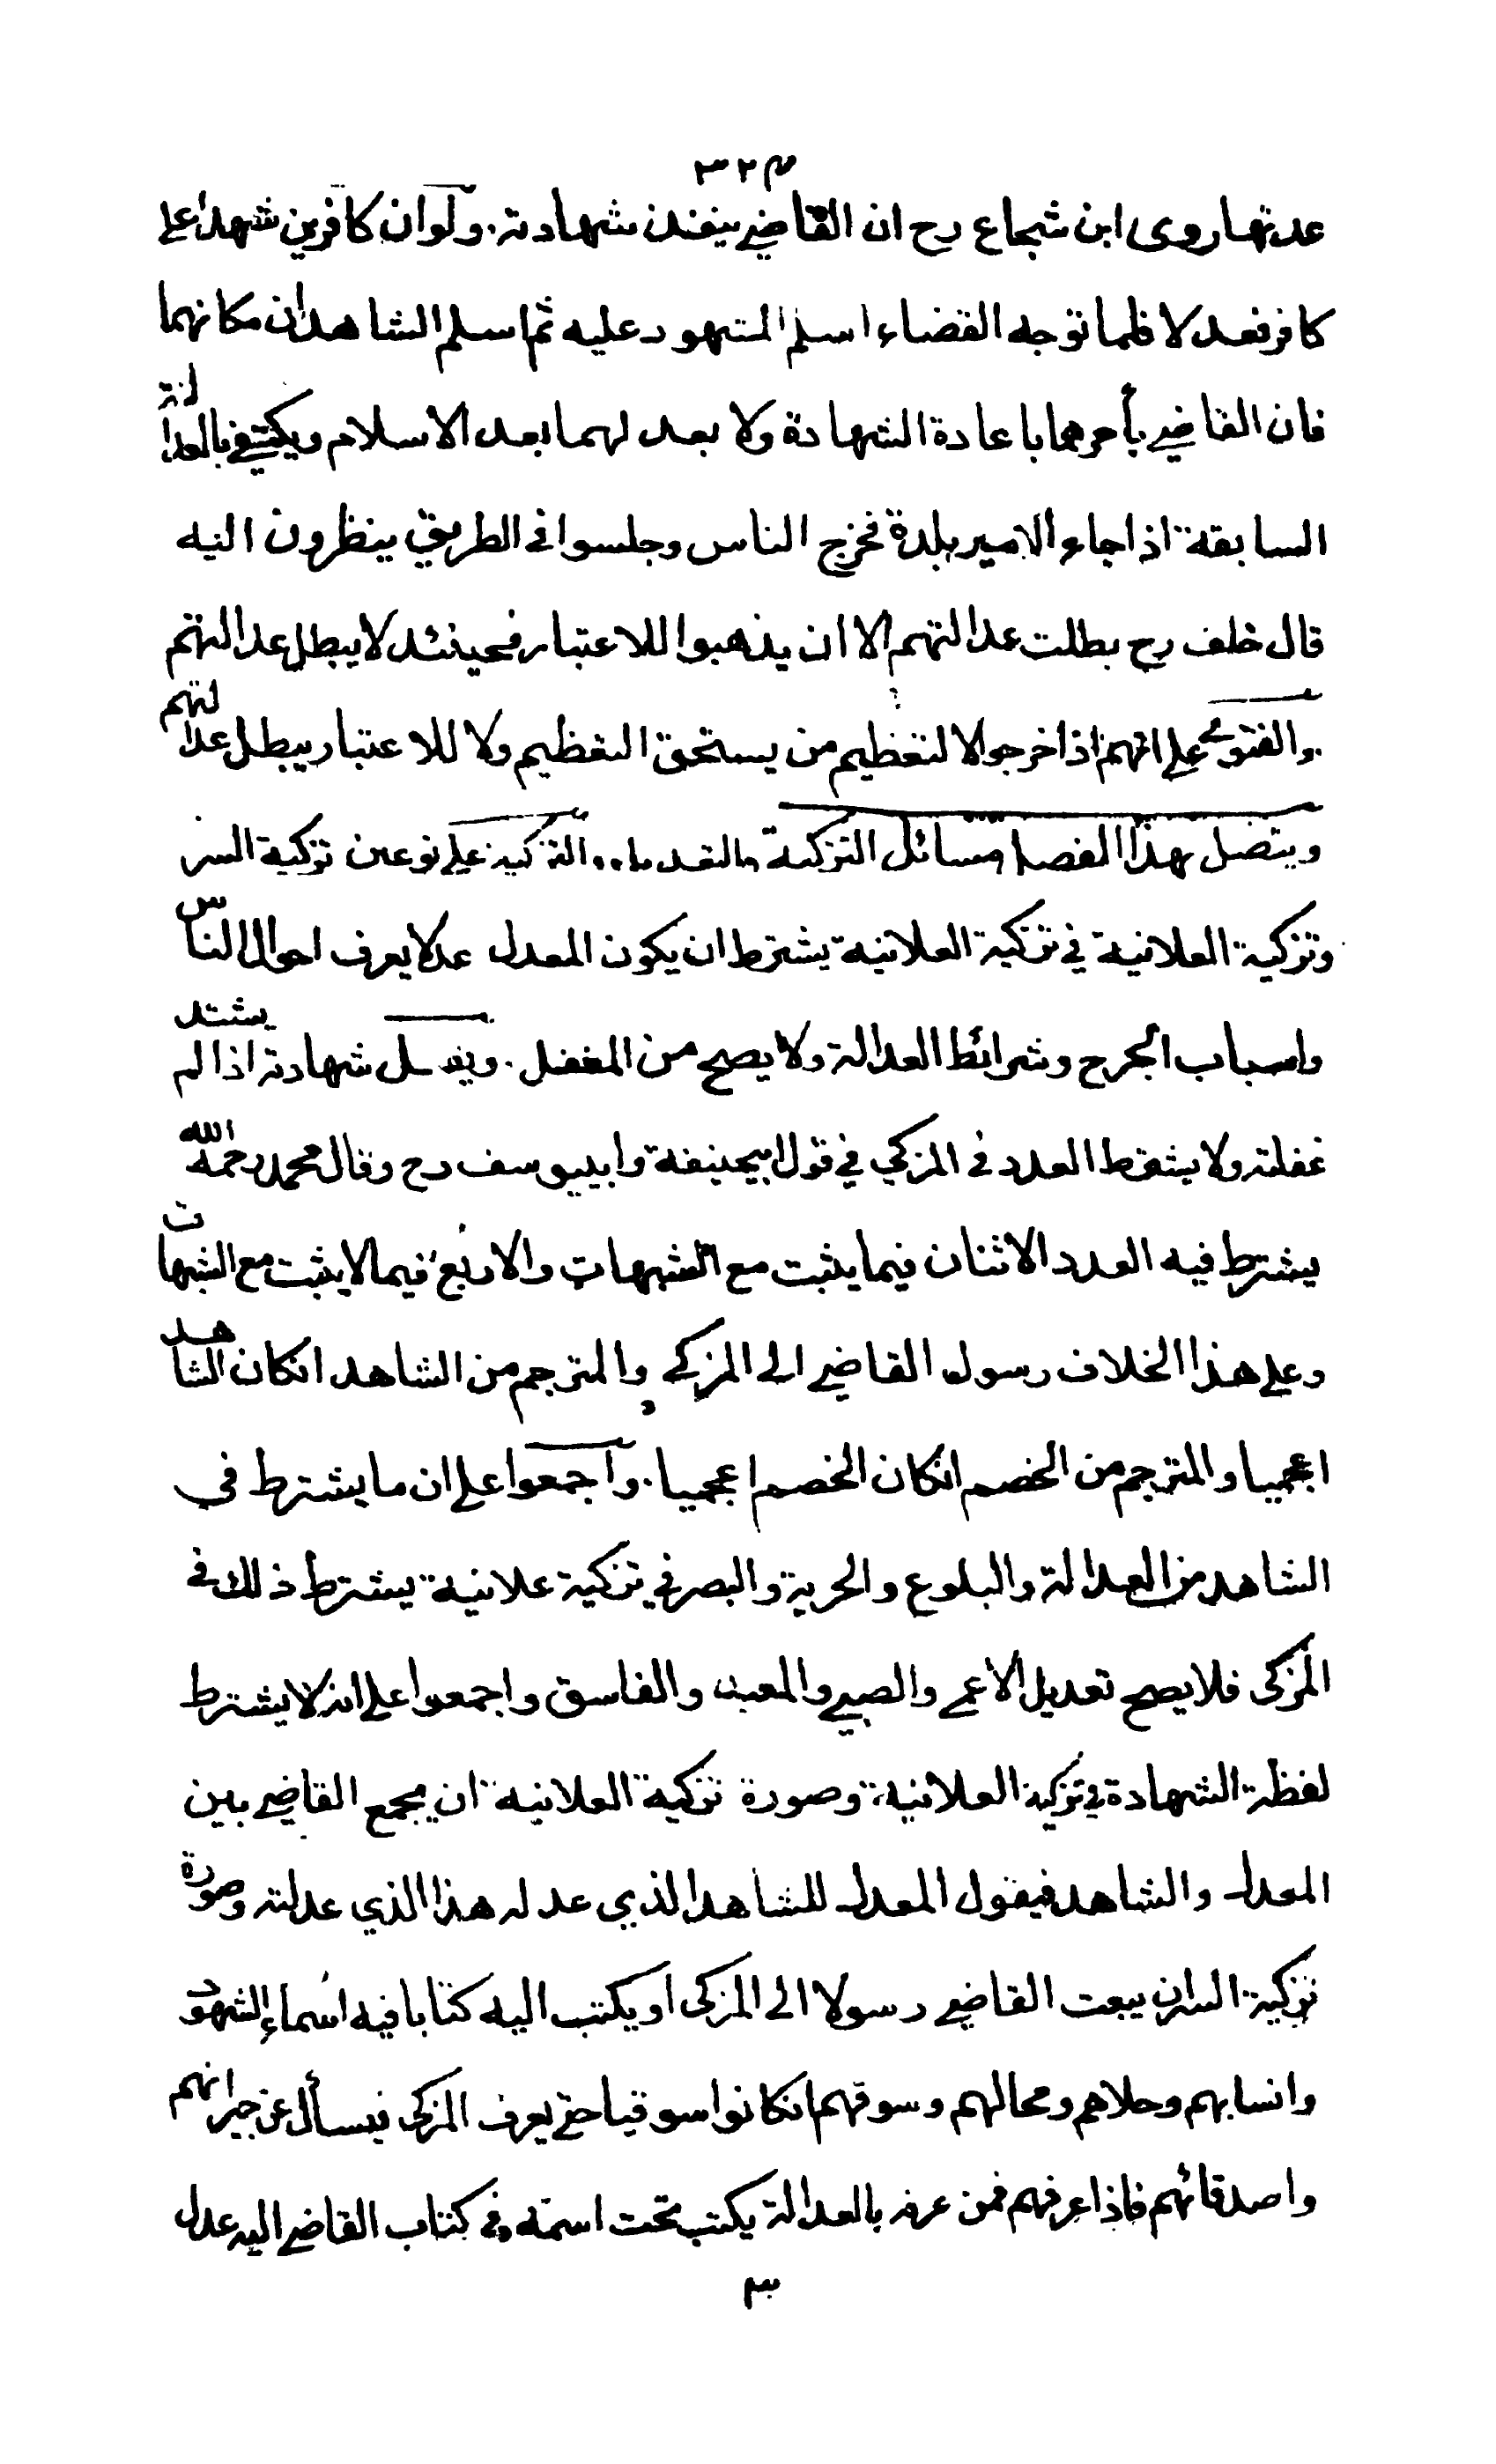 ٣٢٣
عدتها روى ابن شجاع رح ان القاضي ينفذ شهادته. ولوان كافرين شهدا على
كافر فعدلا فلما توجه القضاء اسلم المشهود عليه ثم اسلم الشاهدان مكانهما
فان القاضي يأمرهما باعادة الشهادة ولا يعد لهما بعد الاسلام ويكتفي بالعدالة
السابقة اذا جاء الامير بلدة فخرج الناس وجلسوا في الطريق ينظرون اليه
قال خلف رح بطلت عدالتهم الا ان يذهبوا للاعتبار فحينئذ لا يبطل عدالتهم
والفتوى على انهم اذا خرجوا لا لتعظيم من يستحق التعظيم ولا للاعتبار يبطل عدالتهم
ويتصل بهذا الفصل مسائل التزكية والتعديل التزكية على نوعين تزكية السر
وتزكية العلانية في تزكية العلانية يشترط ان يكون المعدل عدلا يعرف احوال الناس
واسباب الجرح وشرائط العدالة ولا يصح من المغفل. ويقبل شهادته اذا لم يشتد
غفلته ولا يشترط العدد في المزكي في قول ابيحنيفة وابييوسف رح وقال محمد رحمه الله
يشترط فيه العدد الاثنان فيما يثبت مع الشبهات والاربع فيما لا يثبت مع الشبهات
وعلى هذا الخلاف رسول القاضي الى المزكى والمترجم من الشاهد انكان الشاهد
اعجميا والمترجم من الخصم انكان الخصم اعجميا. واجمعوا على ان ما يشترط في
الشاهد من العدالة والبلوغ والحرية والبصر في تزكية علانية يشترط ذلك في
المزكى فلا يصح تعديل الاعمى والصبي والعبد والفاسق واجمعوا على انه لا يشترط
لفظة الشهادة في تزكية العلانية، وصورة تزكية العلانية ان يجمع القاضي بين
المعدل والشاهد فيقول المعدل للشاهد الذي عدله هذا الذي عدلته وصورة
تزكية السر ان يبعث القاضي رسولا الى المزكى او يكتب اليه كتابا فيه اسماء الشهود
وانسابهم وحلاهم ومحالهم وسوقهم انكانوا سوقيا حتى يعرف المزكى فيسأل عن جيرانهم
واصدقائهم فاذا عرفهم فمن عرف بالعدالة يكتب تحت اسمه في كتاب القاضي اليه عدل